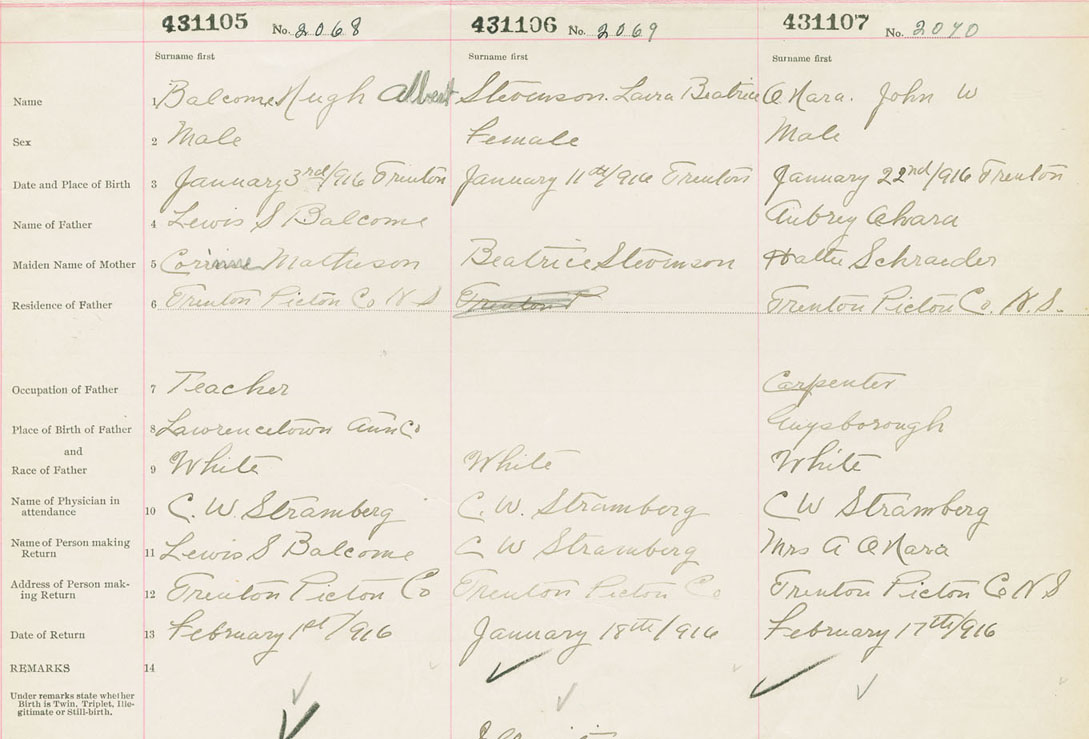 431105 No. 2068 431106 No. 2069 431107 No. 2070
Surname first Surname first Surname first
Name 1 Balcome Hugh Albert Stevenson. Laura Beatrice O Hara. John W
Sex 2 Male Female Male
Date and Place of Birth 3 January 3rd/916 Trenton January 11th/916 Trenton January 22nd/916 Trenton
Name of Father 4 Lewis S Balcome Aubrey Ohara
Maiden Name of Mother 5 Corinne Matheson Beatrice Stevenson Hattie Schraeder
Residence of Father 6 Trenton Picton Co N S Trenton Trenton Picton Co. N. S.
Occupation of Father 7 Teacher Carpenter
Place of Birth of Father 8 Lawrencetown Ann Co Guysborough
and
Race of Father 9 White White White
Name of Physician in
attendance 10 C. W. Stramberg C. W. Stramberg C W Stramberg
Name of Person making
Return 11 Lewis S Balcome C W Stramberg Mrs A O Hara
Address of Person mak-
ing Return 12 Trenton Picton Co Trenton Picton Co Trenton Picton Co N S
Date of Return 13 February 1st/916 January 18th/916 February 17th/916
REMARKS 14
Under remarks state whether
Birth is Twin, Triplet, Ille-
gitimate or Still-birth.